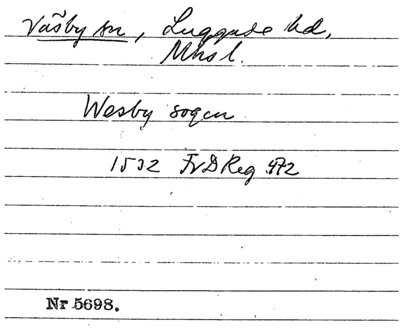 Väsby sn, Luggude hd,
Mhsl.
Wesby sogen
1532 FrDReg 472
Nr 5698.